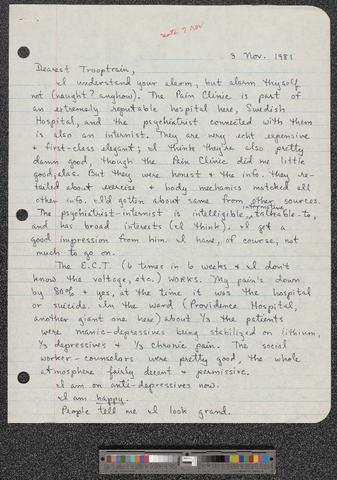 note 7 Nov
3 Nov. 1981
Dearest Trooptrain,
I understand your alarm, but alarm thyself
not (naught? anyhow). The Pain Clinic is part of
an extremely reputable hospital here, Swedish
Hospital, and the psychiatrist connected with them
is also an internist. They are very echt expensive
& first-class elegant; I think they're also pretty
damn good, though the Pain Clinic did me little
good, alas. But they were honest & the info. they re-
tailed about exercise & body mechanics matched all
other info. I'd gotten about same from other sources.
The psychiatrist-internist is intelligible, informative, talkable-to,
and has broad interests (I think). I get a
good impression from him. I have, of course, not
much to go on.
The E.C.T. (6 times in 6 weeks & I don't
know the voltage, etc.) WORKS. My pain's down
by 80% & yes, at the time it was the hospital
or suicide. In the ward (Providence Hospital,
another giant one here) about 1/3 the patients
were manic-depressives being stabilized on lithium,
1/3 depressives & 1/3 chronic pain. The social
worker-counselors were pretty good, the whole
atmosphere fairly decent & permissive.
I am on anti-depressives now.
I am happy.
People tell me I look grand.